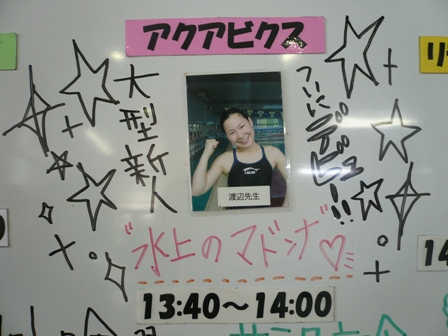 アクアビクス
大型新人
ついにデビュー!!
渡辺先生
"水上のマドンナ"♡
13:40～14:00